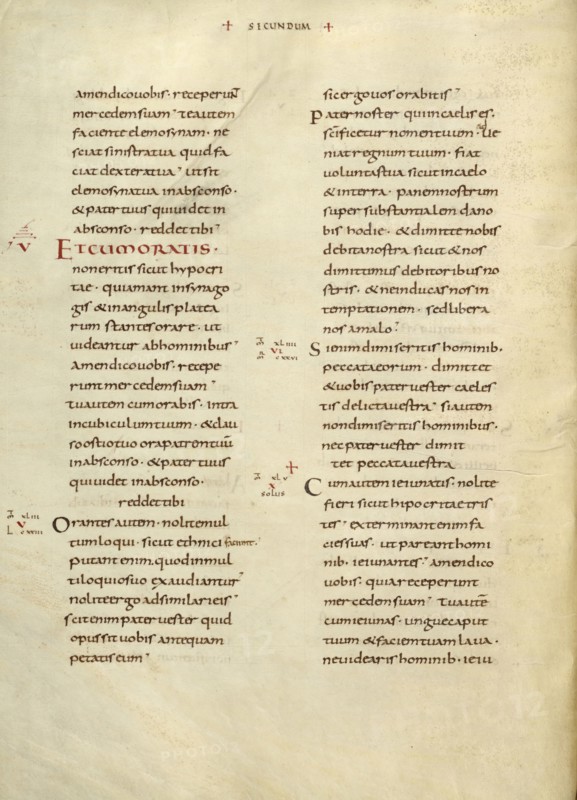 + SECUNDUM +
Amendico uobis · receperunt
mercedem suam · te autem
faciente elemosynam · ne
sciat sinistra tua quid fa
ciat dextera tua · ut sit
elemosyna tua in absconso ·
& pater tuus qui uidet in
absconso · reddet tibi
ET CUM ORATIS ·
V
non eritis sicut hypocri
tae · qui amant in synago
gis & in angulis platea
rum stantes orare · ut
uideantur ab hominibus
Amen dico uobis · recepe
runt mercedem suam
tu autem cum orabis · intra
in cubiculum tuum · & clau
so ostio tuo ora patrem tuū
in absconso · & pater tuus
qui uidet in absconso ·
reddet tibi
xLIII
V
L cxxiii
Orantes autem · nolite mul
tum loqui · sicut ethnici faciunt ·
putant enim · quod in mul
tiloquio suo exaudiantur
nolite ergo adsimilari eis
scit enim pater uester quid
opus sit uobis antequam
petatis eum
sic ergo uos orabitis
Pater noster qui in caelis es ·
scificetur nomen tuum · Ue
niat regnum tuum · fiat
uoluntas tua sicut in caelo
& in terra · panem nostrum
super substantialem da no
bis hodie · & dimitte nobis
debita nostra sicut & nos
dimittimus debitoribus no
stris · & ne inducas nos in
temptationem · sed libera
nos a malo
xLIIII
VI
cxxvi
Si enim dimiseritis hominib ·
peccata eorum · dimittet
& uobis pater uester caeles
tis delicta uestra · si autem
non dimiseritis hominibus ·
nec pater uester dimit
tet peccata uestra
+
xLv
x
solus
Cum autem ieiunatis · nolite
fieri sicut hipocritae tris
tes · exterminant enim fa
cies suas · ut pareant homi
nib · ieiunantes · amen dico
uobis · quia receperunt
mercedem suam · Tu autē
cum ieiunas · ungue caput
tuum & faciem tuam laua ·
ne uidearis hominib · ieiu